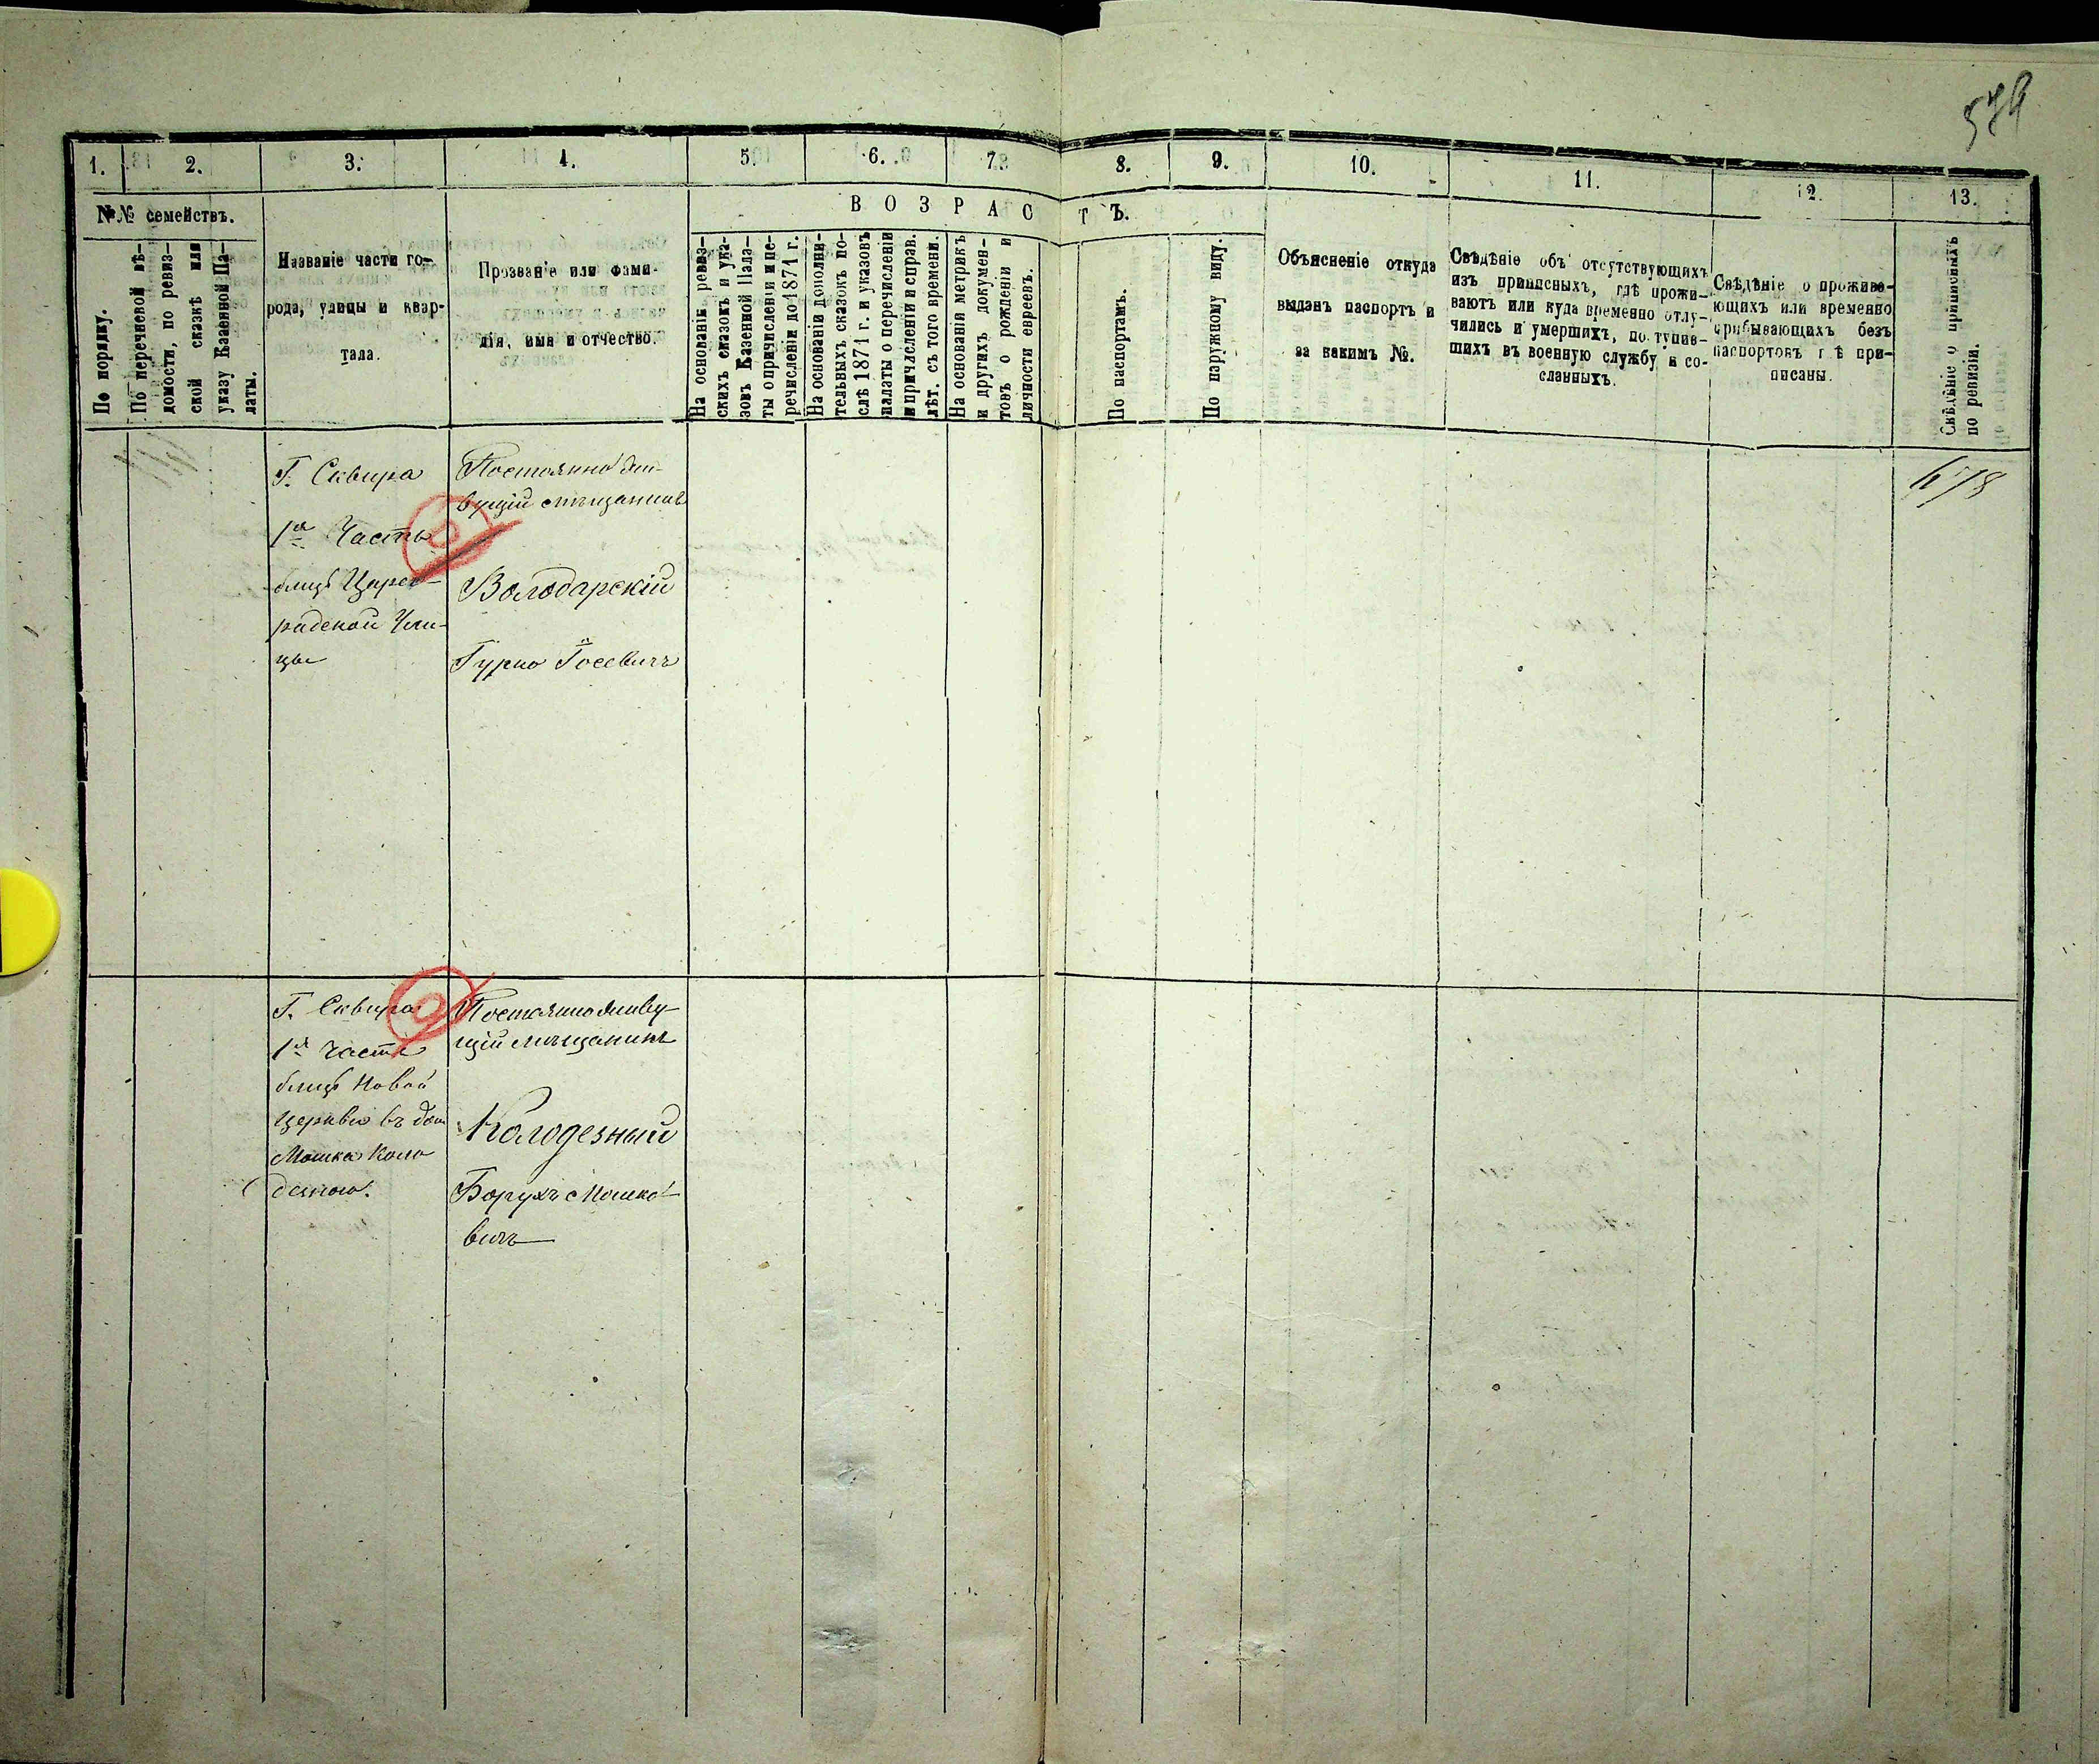 579
1. 2. 3. 4. 5. 6. 7. 8. 9. 10. 11. 12. 13.
№№ семействъ.
По порядку.
По перечневой вѣ-
домости, по ревиз-
ской сказкѣ или
указу Казенной Па-
латы.
Названіе части го-
рода, улицы и квар-
тала.
Прозваніе или фами-
лія, имя и отчество.
ВОЗРАСТЪ.
На основаніи ревиз-
скихъ сказокъ и ука-
зовъ Казенной Пала-
ты о причисленіи и пе-
речисленіи до 1871 г.
На основаніи дополни-
тельныхъ сказокъ по-
слѣ 1871 г. и указовъ
палаты о перечисленіи
и причисленіи и справ.
лѣт. съ того времени.
На основаніи метрикъ
и другихъ докумен-
товъ о рожденіи и
личности евреевъ.
По паспортамъ.
По наружному виду.
Объясненіе откуда
выданъ паспортъ и
за какимъ №.
Свѣдѣніе объ отсутствующихъ
изъ приписныхъ, гдѣ прожи-
ваютъ или куда временно отлу-
чились и умершихъ, поступив-
шихъ въ военную службу и со-
сланныхъ.
Свѣдѣніе о прожива-
ющихъ или временно
прибывающихъ безъ
паспортовъ гдѣ при-
писаны.
Свѣдѣніе о приписныхъ
по ревизіи.
Г. Сквира
1я Часть
близь Царег-
радской Ули-
цы
Постоянно жи-
вущій мѣщанинъ
Володарскій
Гурко Іосевичъ
678
Г. Сквира
1я часть
близь Новой
Церкви въ дом
Мошка Коло
дезного.
Постоянно живу-
щій мѣщанинъ
Колодезный
Борухъ Мошко-
вичъ